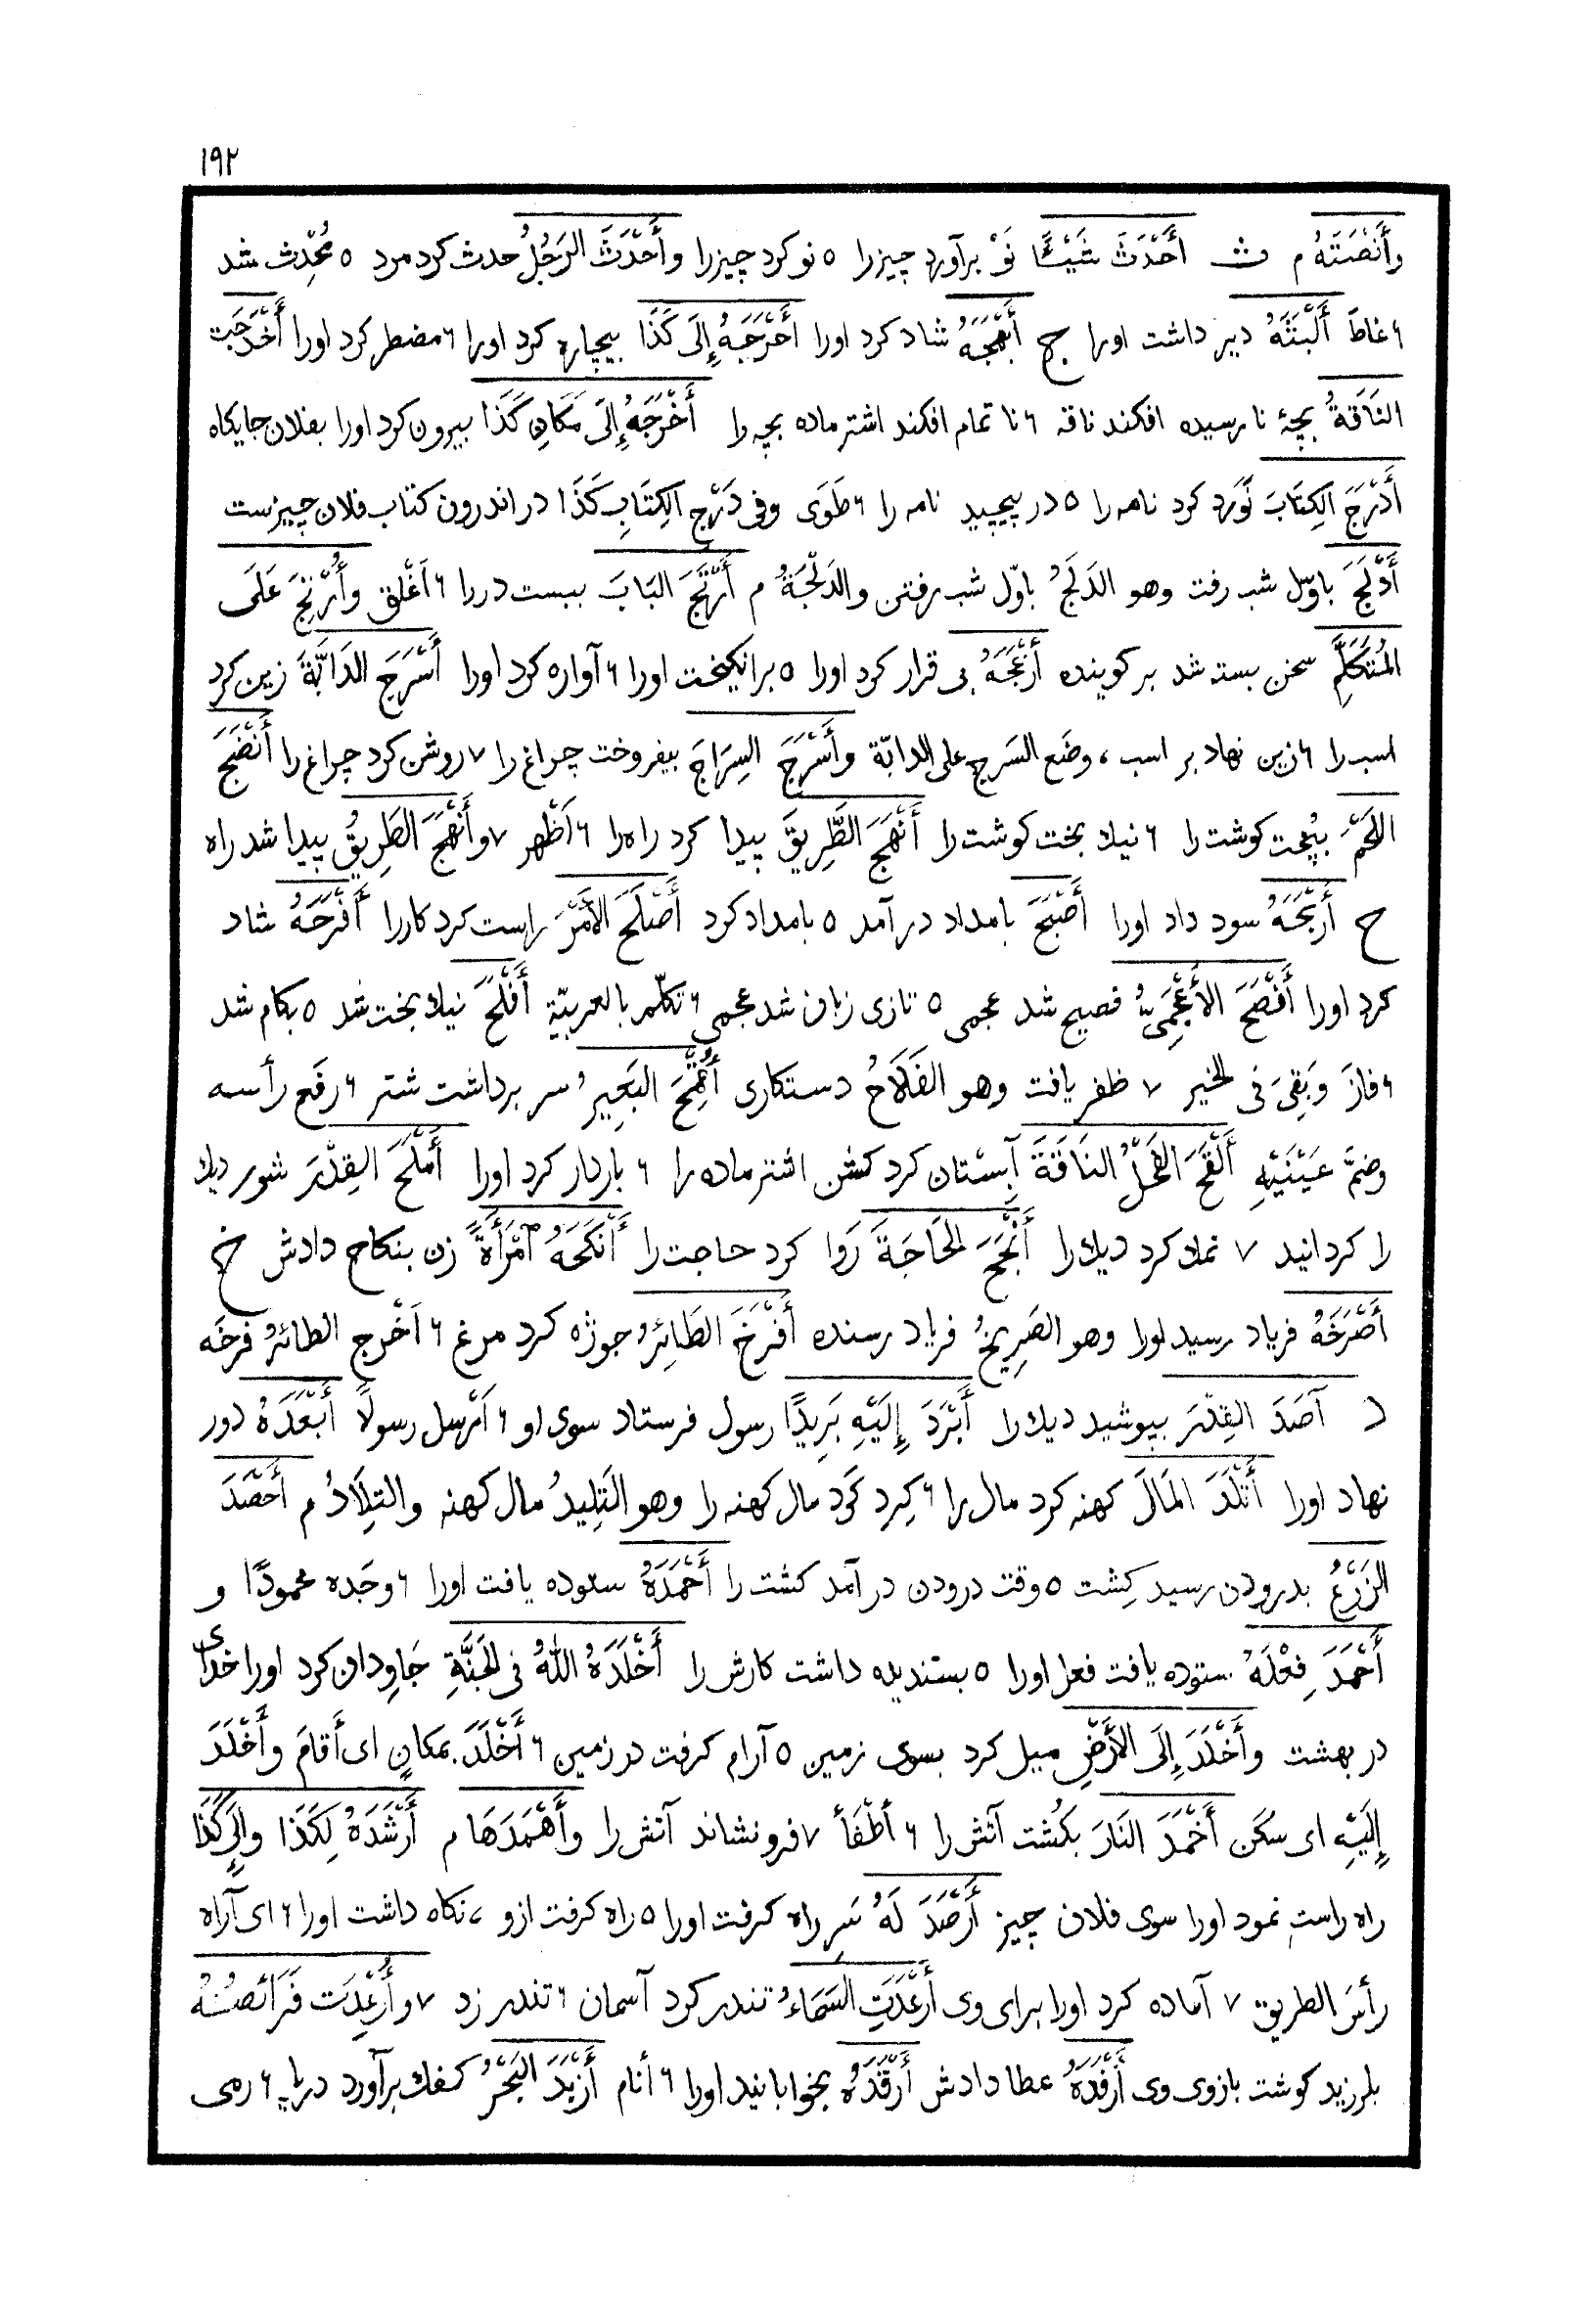 ١٩٢
وأَنْصَتَهُ م ث أَحْدَثَ شَيْئًا نَوْ برآورد چيزرا ٥ نو كرد چيزرا وأَحْدَثَ الرَجُلُ حدث كرد مرد ٥ مُحْدِث شد
٦ غاطَ أَلْبَثَهُ دير داشت اورا ج أَبْهَجَهُ شاد كرد اورا أَحْرَجَهُ إِلَى كَذَا بيچاره كرد اورا ٦ مضطر كرد اورا أَخْدَجَت
النَاقَةُ بچۀ نا رسيده افكند ناقه ٦ نا تمام افكند اشتر ماده بچه را أَخْرَجَهُ إِلَى مَكَانِ كَذَا بيرون كرد اورا بفلان جايكاه
أَدْرَجَ الكِتَابَ نَوَرد كرد نامه را ٥ در پيچيد نامه را ٦ طَوَى وفى دَرْجِ الكِتَابِ كَذَا در اندرون كتاب فلان چيزست
أَدْلَجَ باوّل شب رفت وهو الدَلَجُ باوّل شب رفتن والدَلْجَةُ م أَرْتَجَ البَابَ ببست دررا ٦ اَغْلق وأُرْتِجَ عَلَى
المُتَكَلِّمِ سخن بسته شد بر كوينده أَزْعَجَهُ بى قرار كرد اورا ٥ برانكيخت اورا ٦ آواره كرد اورا أَسْرَجَ الدَابَّةَ زين كرد
اسب را ٦ زين نهاد بر اسب ، وضَع السَرج على الدابّة وأَسْرَجَ السِرَاجَ بيفروخت چراغ را ٧ روشن كرد چراغ را أَنْضَجَ
اللَحْمَ بپُخت كوشت را ٦ نيك پخت كوشت را أَنْهَجَ الطَّرِيقَ پيدا كرد راه را ٦ اَظْهر ٧ وأَنْهَجَ الطَرِيقُ پيدا شد راه
ح أَرْبَحَهُ سود داد اورا أَصْبَحَ بامداد در آمد ٥ بامداد كرد أَصْلَحَ الأَمْرَ راست كرد كاررا أَفْرَحَهُ شاد
كرد اورا أَفْصَحَ الأَعْجَمِىُّ فصيح شد عجمى ٥ تازى زبان شد عجمى ٦ تكلّم بالعربيّة أَفْلَحَ نيك بخت شد ٥ بكام شد
٦ فازَ وَبَقِىَ فى الخير ٧ ظفر يافت وهو الفَلَاحُ دستكارى أَقْمَحَ البَعِيرُ سر برداشت شتر ٦ رفَع رأسه
وضمَّ عَيْنَيْهِ أَلْقَحَ الفَحْلُ النَاقَةَ آبستان كرد كشن اشتر ماده را ٦ باردار كرد اورا أَمْلَحَ القِدْرَ شور ديك
را كردانيد ٧ نمك كرد ديك را أَنْجَحَ الحَاجَةَ رَوا كرد حاجت را أَنْكَحَهُ امْرَأَةً زن بنكاح دادش خ
أَصْرَخَهُ فرياد رسيد اورا وهو الصَرِيخُ فرياد رسنده أَفْرَخَ الطَائِرُ جوژه كرد مرغ ٦ اَخْرج الطائرُ فرخَه
د آصَدَ القِدْرَ بپوشيد ديك را أَبْرَدَ إِلَيْهِ بَرِيدًا رسول فرستاد سوى او ٦ اَرْسل رسولاً أَبْعَدَهُ دور
نهاد اورا أَتْلَدَ المَالَ كهنه كرد مال را ٦ كِرد كرد مال كهنه را وهو التَلِيدُ مال كهنه والتِلَادُ م أَحْصَدَ
الزَرْعُ بدرودن رسيد كِشت ٥ وقت درودن در آمد كشت را أَحْمَدَهُ ستوده يافت اورا ٦ وجَده محمودًا و
أَحْمَدَ فِعْلَهُ ستوده يافت فعل اورا ٥ بسنديده داشت كارش را أَخْلَدَهُ اللهُ فى الجَنَّةِ جَاوِدان كرد اورا خداى
در بهشت وأَخْلَدَ إِلَى الأَرْضِ ميل كرد بسوى زمين ٥ آرام كرفت در زمين ٦ أَخْلَدَ بمكانٍ اى أَقامَ وأَخْلَدَ
إِلَيْهِ اى سكَن أَخْمَدَ النَارَ بكُشت آتش را ٦ أَطْفَأ ٧ فرونشاند آتش را وأَهْمَدَهَا م أَرْشَدَهُ لِكَذَا وإِلَى كَذَا
راه راست نمود اورا سوى فلان چيز أَرْصَدَ لَهُ سَرِ راه كرفت اورا ٥ راه كرفت ازو ، نكاه داشت اورا ٦ اى آراه
رأسَ الطريق ٧ آماده كرد اورا براى وى أَرْعَدَتِ السَمَاءُ تندر كرد آسمان ٦ تندر زد ٧ وأُرْعِدَت فَرَائصُهُ
بلرزيد كوشت بازوى وى أَرْفَدَهُ عطا دادش أَرْقَدَهُ بخوابانيد اورا ٦ أنام أَزْبَدَ البَحْرُ كفك برآورد دريا ٦ رمى